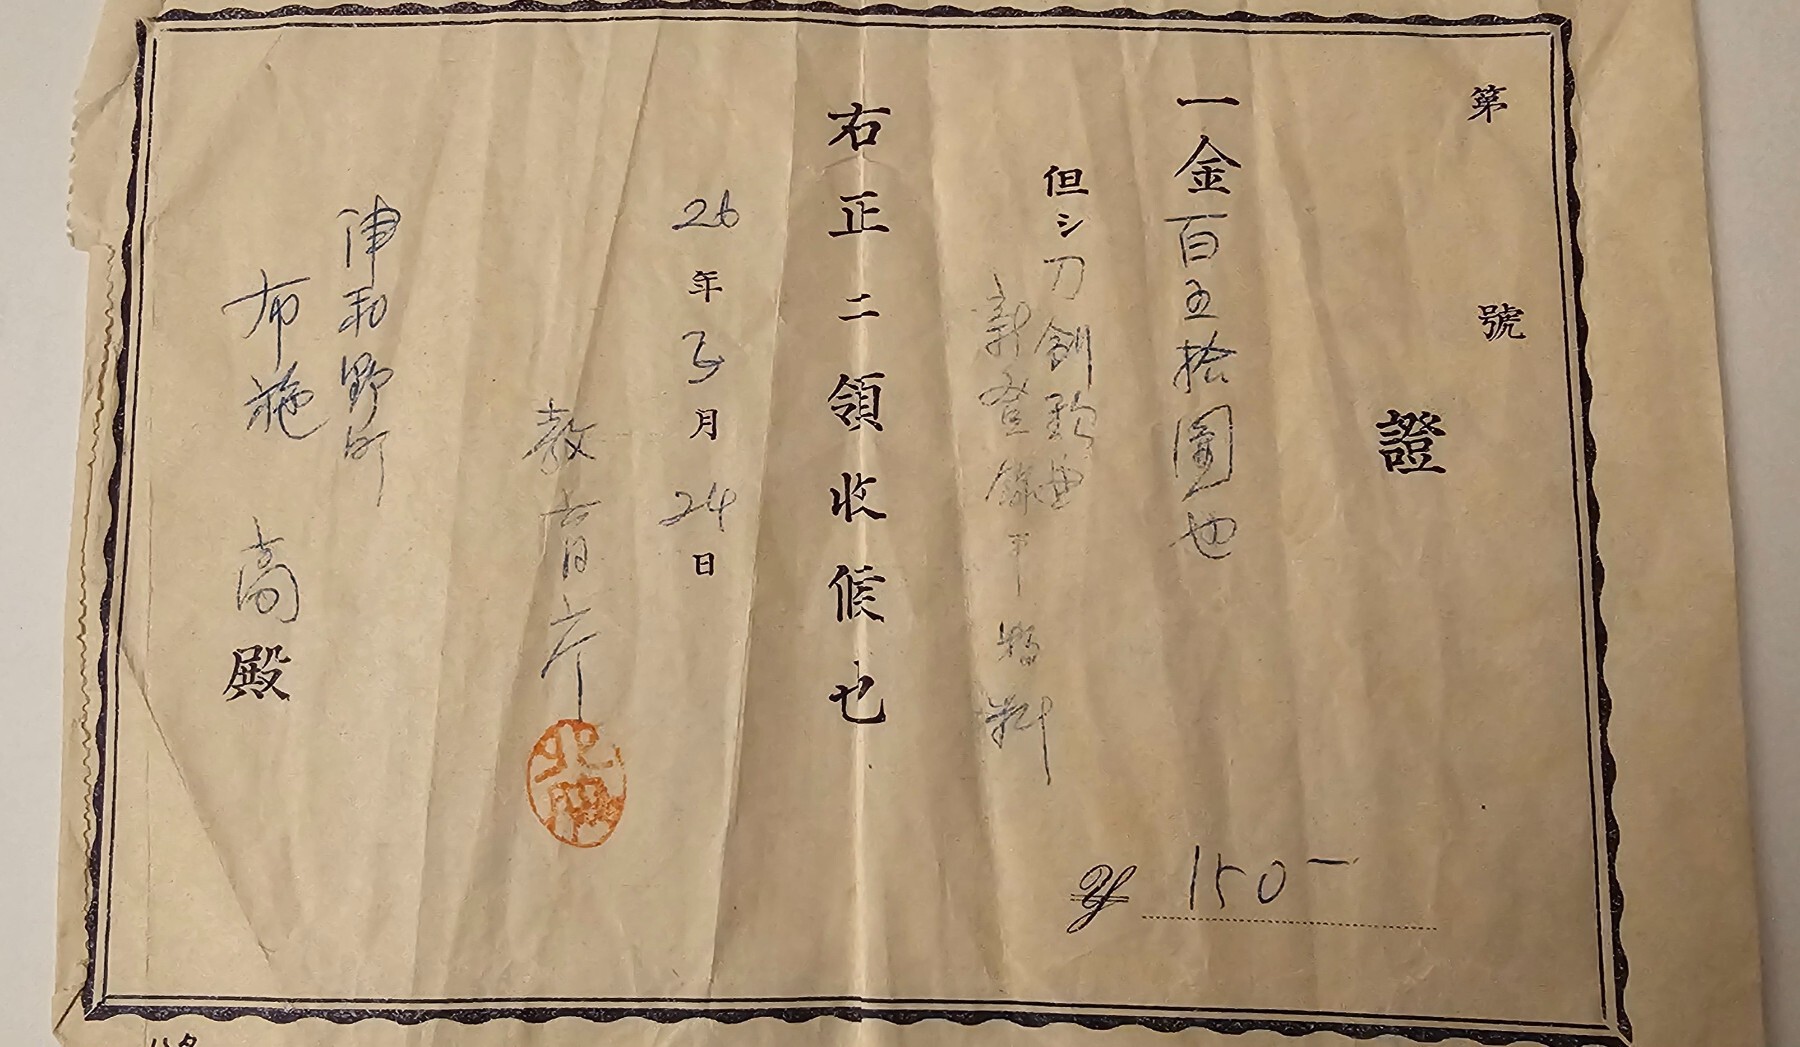 第 號
證
一金百五拾圓也
但シ刀剣
新登録申
右正ニ領收候也
26年3月24日
教育庁
津和野町
布施 高殿
¥ 150-